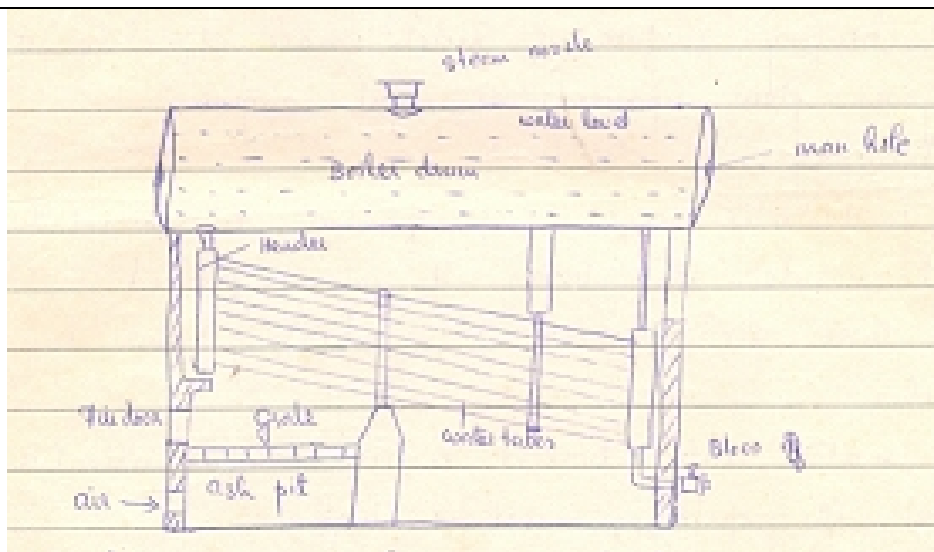 steam nozzle
water level
man hole
Boiler drum
Header
Fire door
Grate
water tubes
Blow
ash pit
air